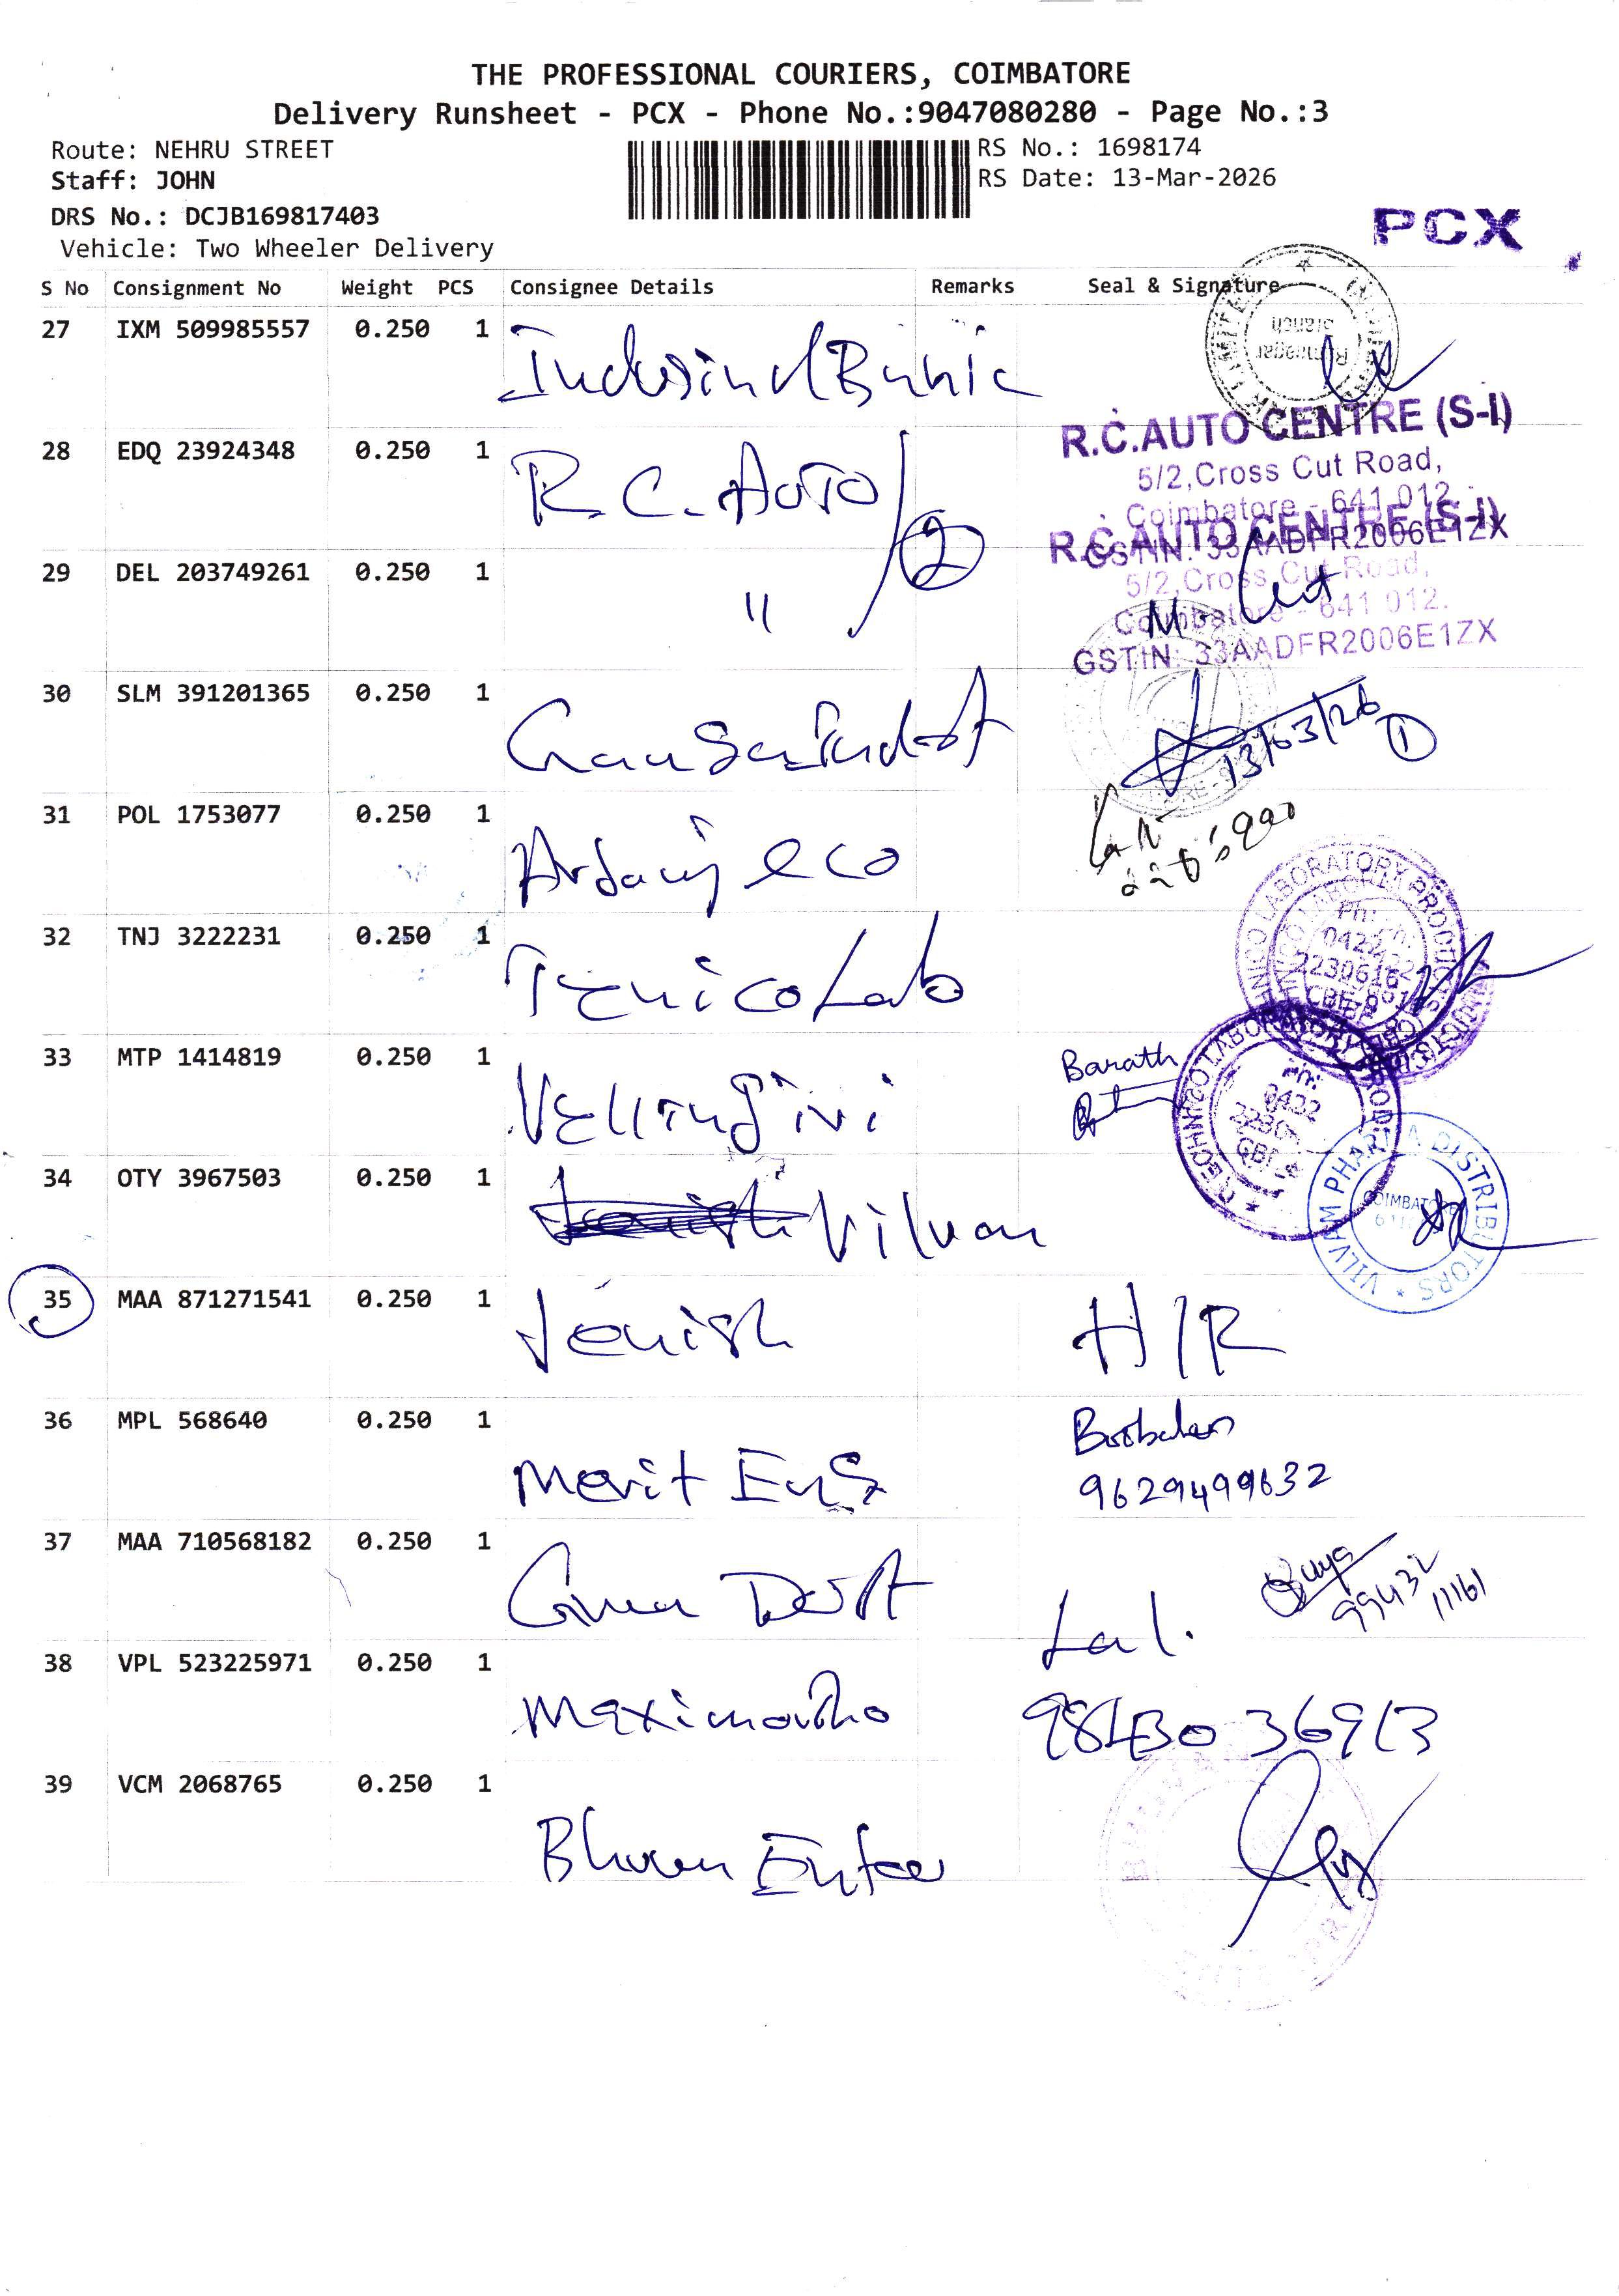 THE PROFESSIONAL COURIERS, COIMBATORE
Delivery Runsheet - PCX - Phone No.:9047080280 - Page No.:3
Route: NEHRU STREET
RS No.: 1698174
Staff: JOHN
RS Date: 13-Mar-2026
DRS No.: DCJB169817403
PCX
Vehicle: Two Wheeler Delivery
S No Consignment No Weight PCS Consignee Details Remarks Seal & Signature
Ramnagar Branch
27 IXM 509985557 0.250 1 Indusind
R.C.AUTO CENTRE (S-I)
5/2,Cross Cut Road,
Coimbatore - 641 012.
GSTIN: 33AADFR2006E1ZX
28 EDQ 23924348 0.250 1 R.C. AUTO
2
R.C.AUTO CENTRE (S-I)
5/2,Cross Cut Road,
Coimbatore - 641 012.
GSTIN: 33AADFR2006E1ZX
29 DEL 203749261 0.250 1 "
30 SLM 391201365 0.250 1
13/03/26 1
31 POL 1753077 0.250 1 eco
32 TNJ 3222231 0.250 1 Lab
33 MTP 1414819 0.250 1 Vellingiri
Barath
TECHNICO LABORATORY PRODUCTS
Ph: 0422 2230616
34 OTY 3967503 0.250 1 Vilvam
VILVAM PHARMA DISTRIBUTORS
COIMBATORE
35 MAA 871271541 0.250 1 Jenish H/R
36 MPL 568640 0.250 1 Merit Eng
Boobalan
9629499632
37 MAA 710568182 0.250 1
99432 11161
Lal.
38 VPL 523225971 0.250 1
98430 36913
39 VCM 2068765 0.250 1